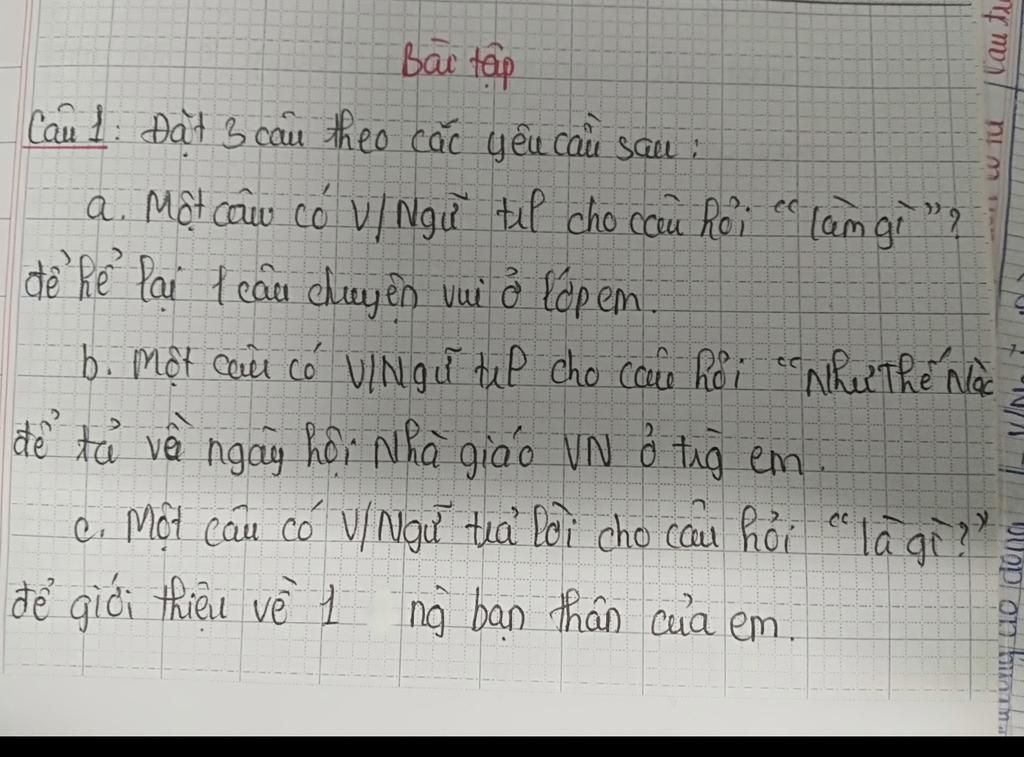 Bài tập
Câu 1: Đặt 3 câu theo các yêu cầu sau:
a. Một câu có V/Ngữ tlP cho câu hỏi "làm gì"?
để kể lại 1 câu chuyện vui ở lớp em.
b. Một câu có V/Ngữ tlP cho câu hỏi "Như Thế Nào
để tả về ngày hội Nhà giáo VN ở trg em.
c. Một câu có V/Ngữ trả lời cho câu hỏi "là gì?"
để giới thiệu về 1 ng bạn thân của em.